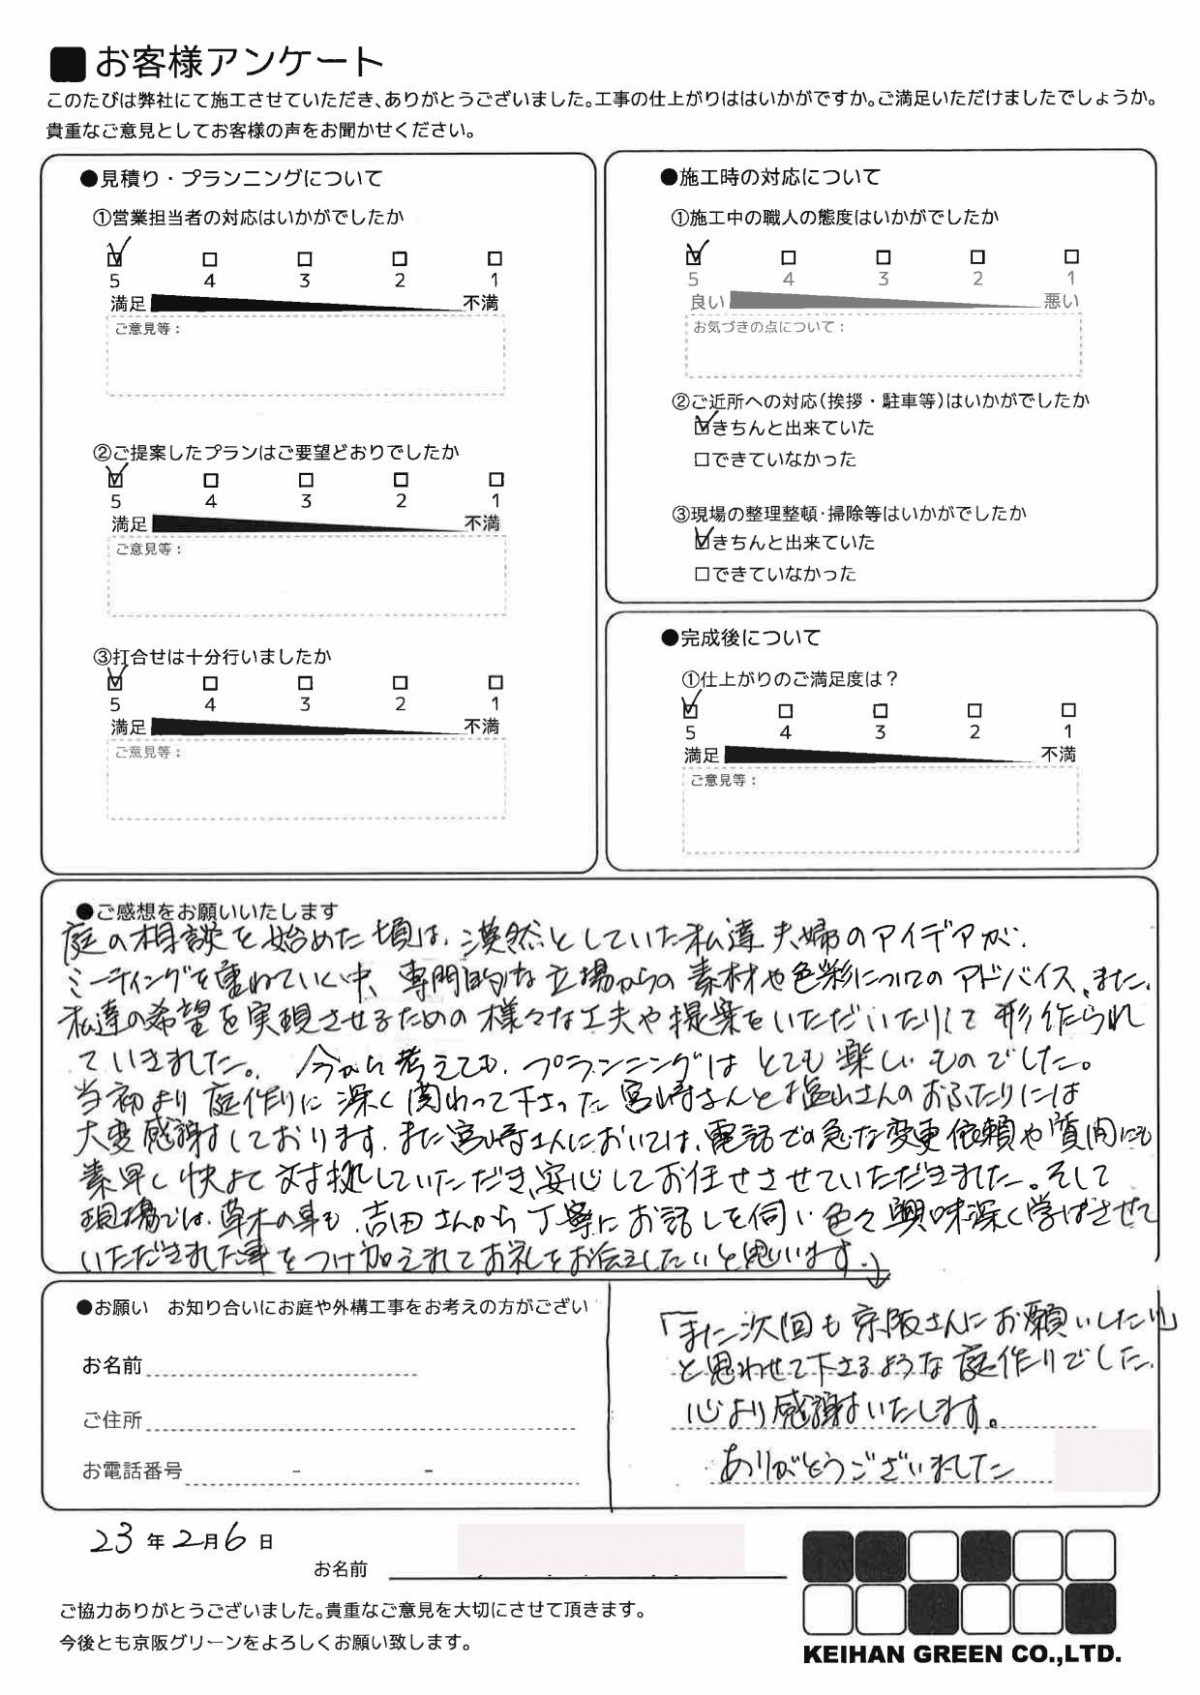 ■お客様アンケート
このたびは弊社にて施工させていただき、ありがとうございました。工事の仕上がりははいかがですか。ご満足いただけましたでしょうか。
貴重なご意見としてお客様の声をお聞かせください。
●見積り・プランニングについて
①営業担当者の対応はいかがでしたか
5 4 3 2 1
満足 不満
ご意見等：
②ご提案したプランはご要望どおりでしたか
5 4 3 2 1
満足 不満
ご意見等：
③打合せは十分行いましたか
5 4 3 2 1
満足 不満
ご意見等：
●施工時の対応について
①施工中の職人の態度はいかがでしたか
5 4 3 2 1
良い 悪い
お気づきの点について：
②ご近所への対応(挨拶・駐車等)はいかがでしたか
☑きちんと出来ていた
□できていなかった
③現場の整理整頓・掃除等はいかがでしたか
☑きちんと出来ていた
□できていなかった
●完成後について
①仕上がりのご満足度は？
5 4 3 2 1
満足 不満
ご意見等：
●ご感想をお願いいたします
庭の相談を始めた頃は、漠然としていた私達夫婦のアイデアが、
ミーティングを重ねていく中、専門的な立場からの素材や色彩についてのアドバイス、また、
私達の希望を実現させるための様々な工夫や提案をいただいたりして形作られ
ていきました。今から考えても、プランニングはとても楽しいものでした。
当初より庭作りに深く関わって下さった宮崎さんと塩山さんのおふたりには
大変感謝しております。また宮崎さんにおいては、電話での急な変更依頼や質問にも
素早く快よく対拠していただき、安心してお任せさせていただきました。そして
現場では、草木の事も、吉田さんから丁寧にお話しを伺い色々興味深く学ばさせて
いただきました事をつけ加えれてお礼をお伝えしたいと思います。
●お願い　お知り合いにお庭や外構工事をお考えの方がござい
お名前
ご住所
お電話番号 - -
「また次回も京阪さんにお願いしたい」
と思わせて下さるような庭作りでした。
心より感謝いたします。
ありがとうございました
23年2月6日
お名前
ご協力ありがとうございました。貴重なご意見を大切にさせて頂きます。
今後とも京阪グリーンをよろしくお願い致します。
KEIHAN GREEN CO.,LTD.